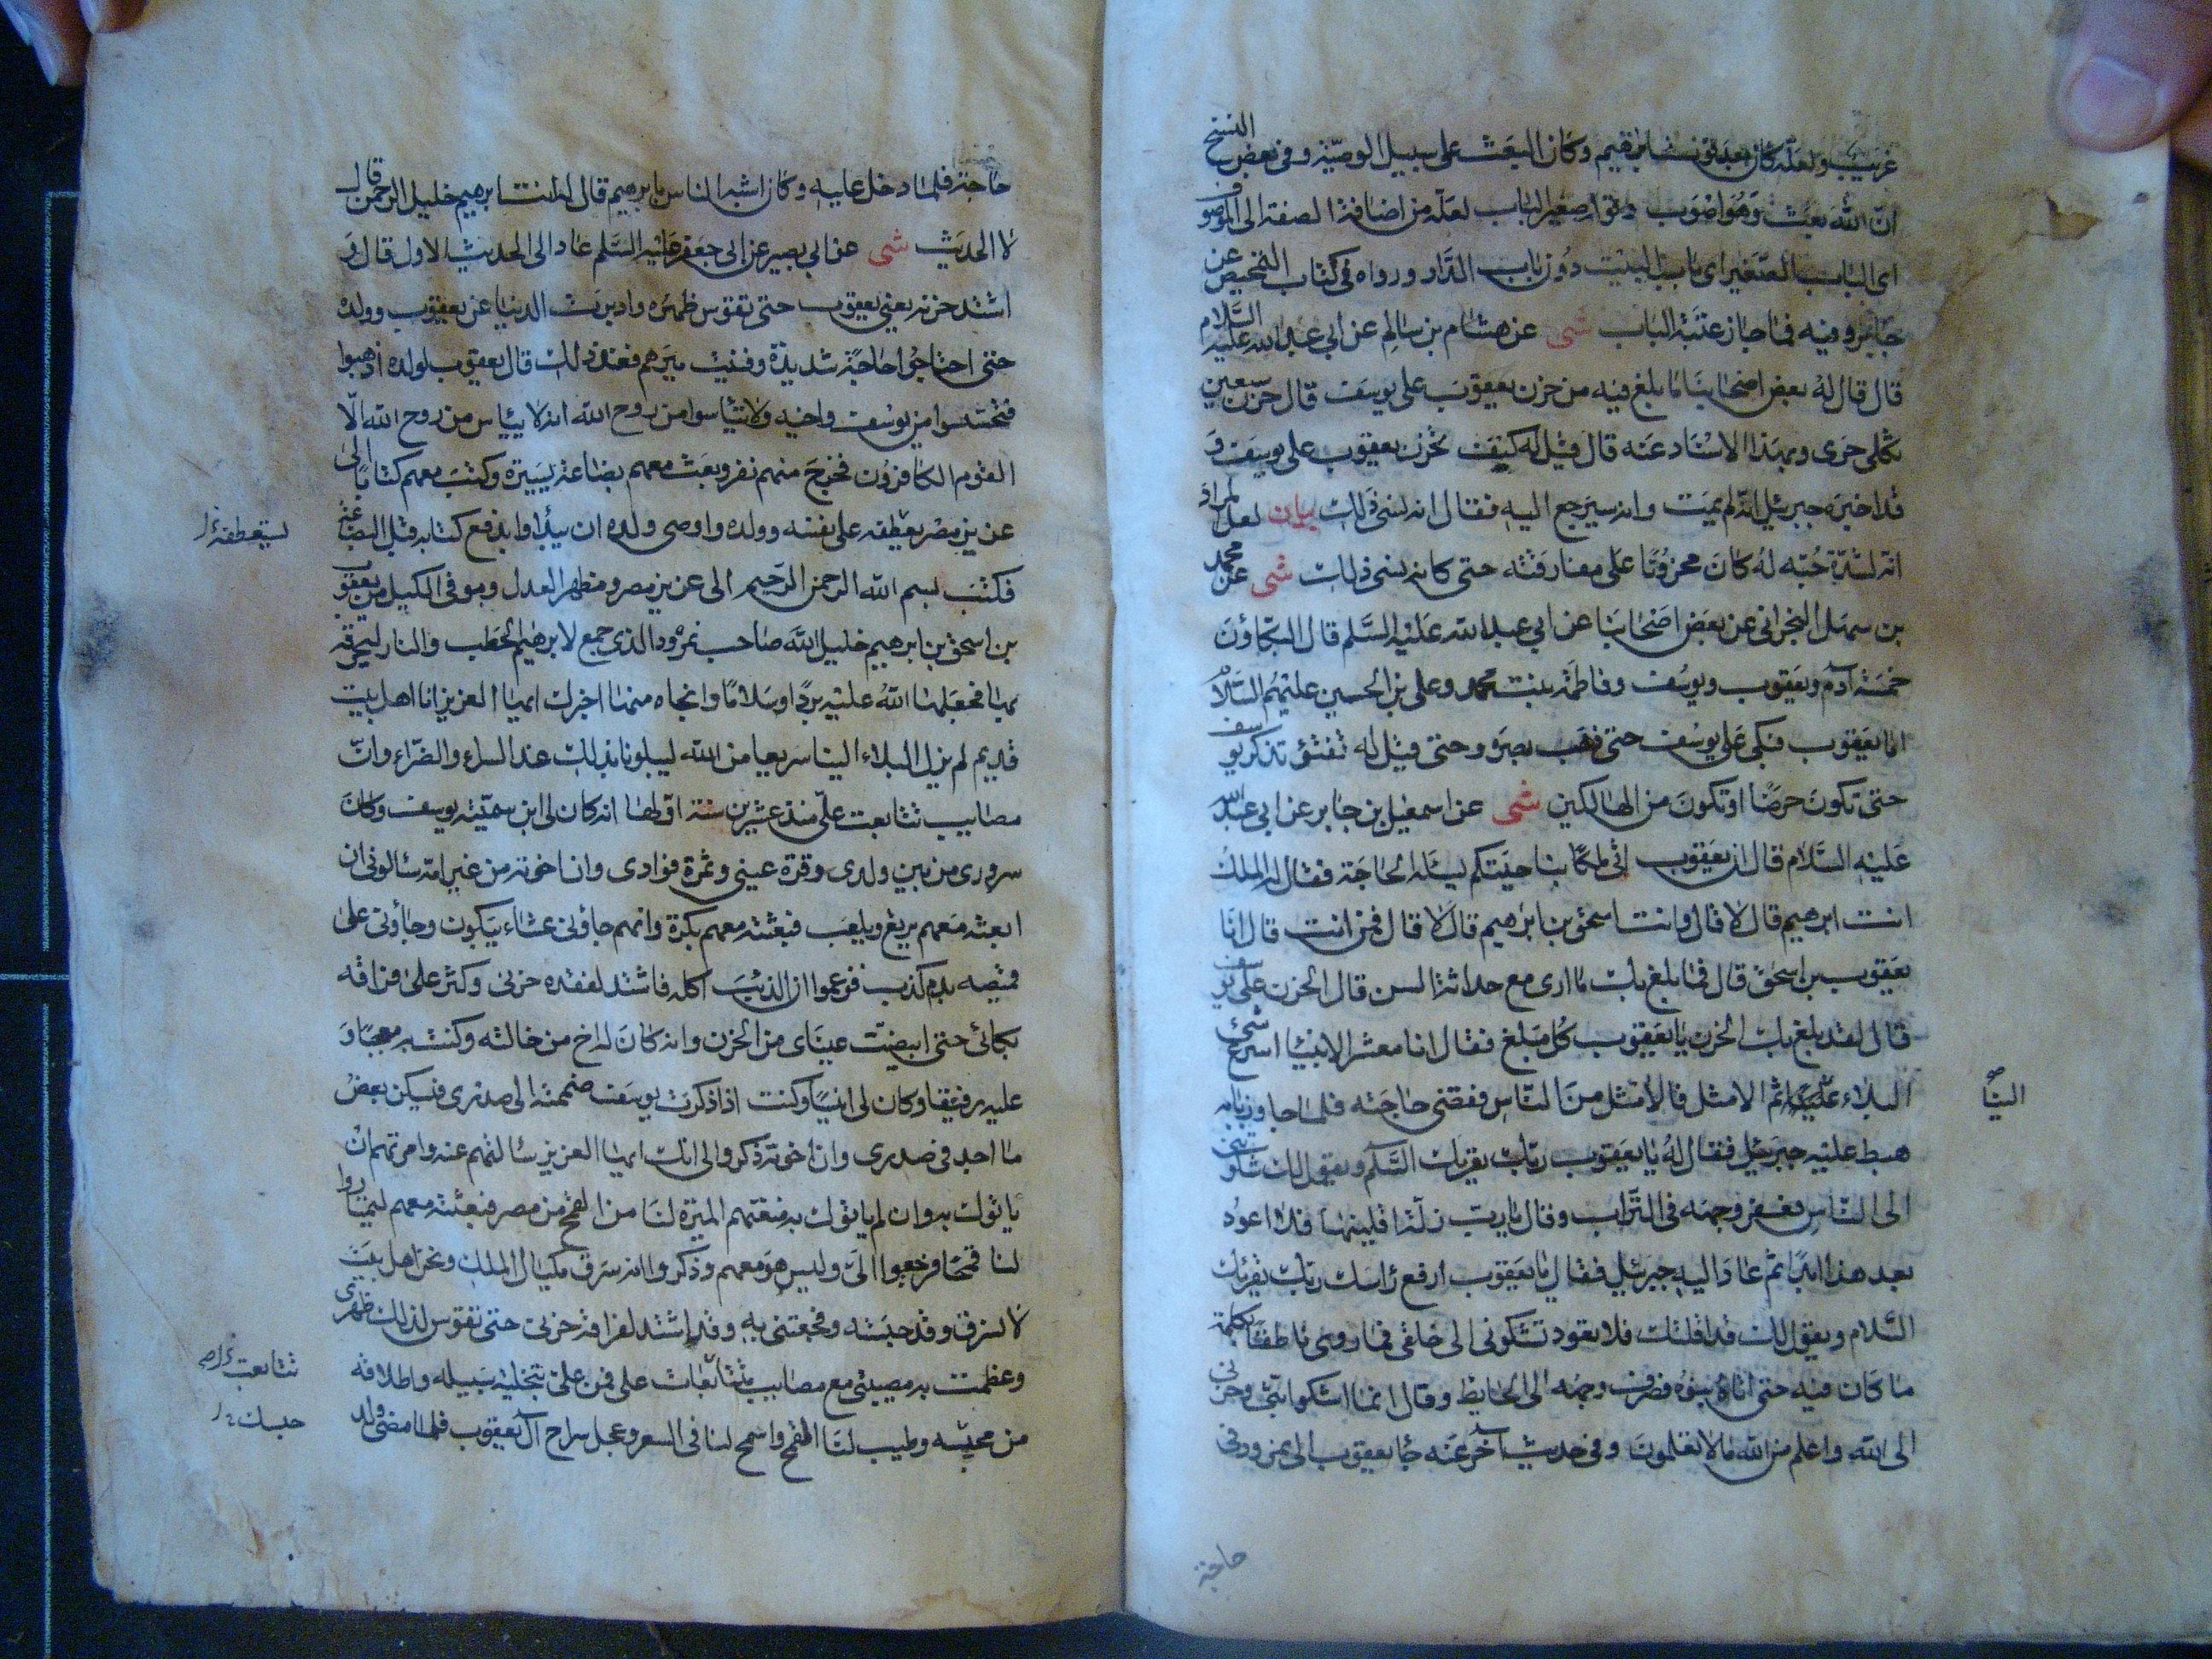 غريب ولعله كان بعد فوت ابرهيم وكان البعث على سبيل الوصية وفى بعض النسخ
ان الله بعث وهو اصوب وقوله صغير الباب لعله من اضافة الصفة الى الموصوف
اى الباب الصغير اى باب البيت دون باب الدار ورواه فى كتاب التمحيص عن
جابر وفيه فما جاز عتبة الباب شى عن هشام بن سالم عن ابي عبد الله عليه السلام
قال قال له بعض اصحابنا ما بلغ فيه من حزن يعقوب على يوسف قال حزن سبعين
ثكلى حرى وبهذا الاسناد عنه قال قيل له كيف يحزن يعقوب على يوسف و
قد اخبره جبرئيل انه لم يمت وانه سيرجع اليه فقال انه نسى ذلك بيان لعل المراد
انه لشدة حبه له كان محزونا على مفارقته حتى كانه نسى ذلك شى عن محمد
بن سهل البحرانى عن بعض اصحابنا عن ابي عبد الله عليه السلم قال البكاؤن
خمسة آدم ويعقوب ويوسف وفاطمة بنت محمد وعلى بن الحسين عليهم السلام
اما يعقوب فبكى على يوسف حتى ذهب بصره وحتى قيل له تفتؤ تذكر يوسف
حتى تكون حرضا او تكون من الهالكين شى عن اسمعيل بن جابر عن ابى عبد الله
عليه السلام قال ان يعقوب اتى ملكا بناحيتكم يساله الحاجة فقال له الملك
انت ابرهيم قال لا قال وانت اسحق بن ابرهيم قال لا قال فمن انت قال انا
يعقوب بن اسحق قال فما بلغ بك ما ارى مع حداثة السن قال الحزن على يوسف
قال لقد بلغ بك الحزن يا يعقوب كل مبلغ فقال انا معشر الانبيا اسرع شىء
البلاء ثم الامثل فالامثل من الناس فقضى حاجته فلما جاوز بابه
الينا
هبط عليه جبرئيل فقال له يا يعقوب ربك يقريك السلم ويقول لك شكوتنى
الى الناس فعفر وجهه فى التراب وقال يا رب زلة اقلنيها فلا اعود
بعد هذا ابدا ثم عاد اليه جبرئيل فقال يا يعقوب ارفع راسك ربك يقرئك
السلام ويقول لك قد اقلتك فلا تعود تشكونى الى خلقى فما روى ناطقا بكلمة
ما كان فيه حتى اتاه بنوه فصرف وجهه الى الحايط وقال انما اشكوا بثى وحزنى
الى الله واعلم من الله ما لا تعلمون وفى حديث آخر عنه جا يعقوب الى نمرود فى
حاجة
حاجة فلما دخل عليه وكان اشبه الناس بابرهيم قال له انت ابرهيم خليل الرحمن قال
لا الحديث شى عن ابي بصير عن ابى جعفر عليه السلم عاد الى الحديث الاول قال و
اشتد حزنه يعنى يعقوب حتى تقوس ظهره وادبرت الدنيا عن يعقوب وولده
حتى احتاجوا حاجة شديدة وفنيت ميرتهم فعند ذلك قال يعقوب لولده اذهبوا
فتحسسوا من يوسف واخيه ولا تيأسوا من روح الله انه لا ييأس من روح الله الا
القوم الكافرون فخرج منهم نفر وبعث معهم بضاعة يسيرة وكتب معهم كتابا الى
عزيز مصر يعطفه على نفسه وولده واوصى ولده ان يبدأوا بدفع كتابه قبل البضاعة
يستعطفه
فكتب بسم الله الرحمن الرحيم الى عزيز مصر ومظهر العدل وموفى الكيل من يعقوب
بن اسحق بن ابرهيم خليل الله صاحب نمرود الذى جمع لابرهيم الحطب والنار ليحرقه
بها فجعلها الله عليه بردا وسلاما وانجاه منها اخبرك ايها العزيز انا اهل بيت
قديم لم يزل البلاء الينا سريعا من الله ليبلونا بذلك عند السراء والضراء وان
مصايب تتابعت على منذ عشرين سنة اولها انه كان لى ابن سميته يوسف وكان
سرورى من بين ولدى وقرة عينى وثمرة فوادى وان اخوته من غير امه سئالونى ان
ابعثه معهم يرتع ويلعب فبعثته معهم بكرة وانهم جاؤنى عشاء يبكون وجاؤنى على
قميصه بدم كذب فزعموا ان الذئب اكله فاشتد لفقده حزنى وكثر على فراقه
بكائى حتى ابيضت عيناى من الحزن وانه كان له اخ من خالته وكنت به معجبا و
عليه رفيقا وكان لى انيسا وكنت اذا ذكرت يوسف ضممته الى صدرى فيسكن بعض
ما اجد فى صدرى وان اخوته ذكروا لى انك ايها العزيز سئالتهم عنه وامرتهم ان
ياتوك به وان لم ياتوك به منعتهم الميرة لنا من القمح من مصر فبعثته معهم ليمتاروا
لنا قمحا فرجعوا الى وليس هو معهم وذكروا انه سرق مكيال الملك ونحن اهل بيت
لا نسرق وقد حبسته وفجعتنى به وقد اشتد لفراقه حزنى حتى تقوس لذلك ظهرى
وعظمت به مصيبتى مع مصايب متتابعات على فمن على بتخلية سبيله واطلاقه
تتابعت
من محبسه وطيب لنا القمح واسمح لنا فى السعر وعجل سراح آل يعقوب فلما مضى ولد
حبسك